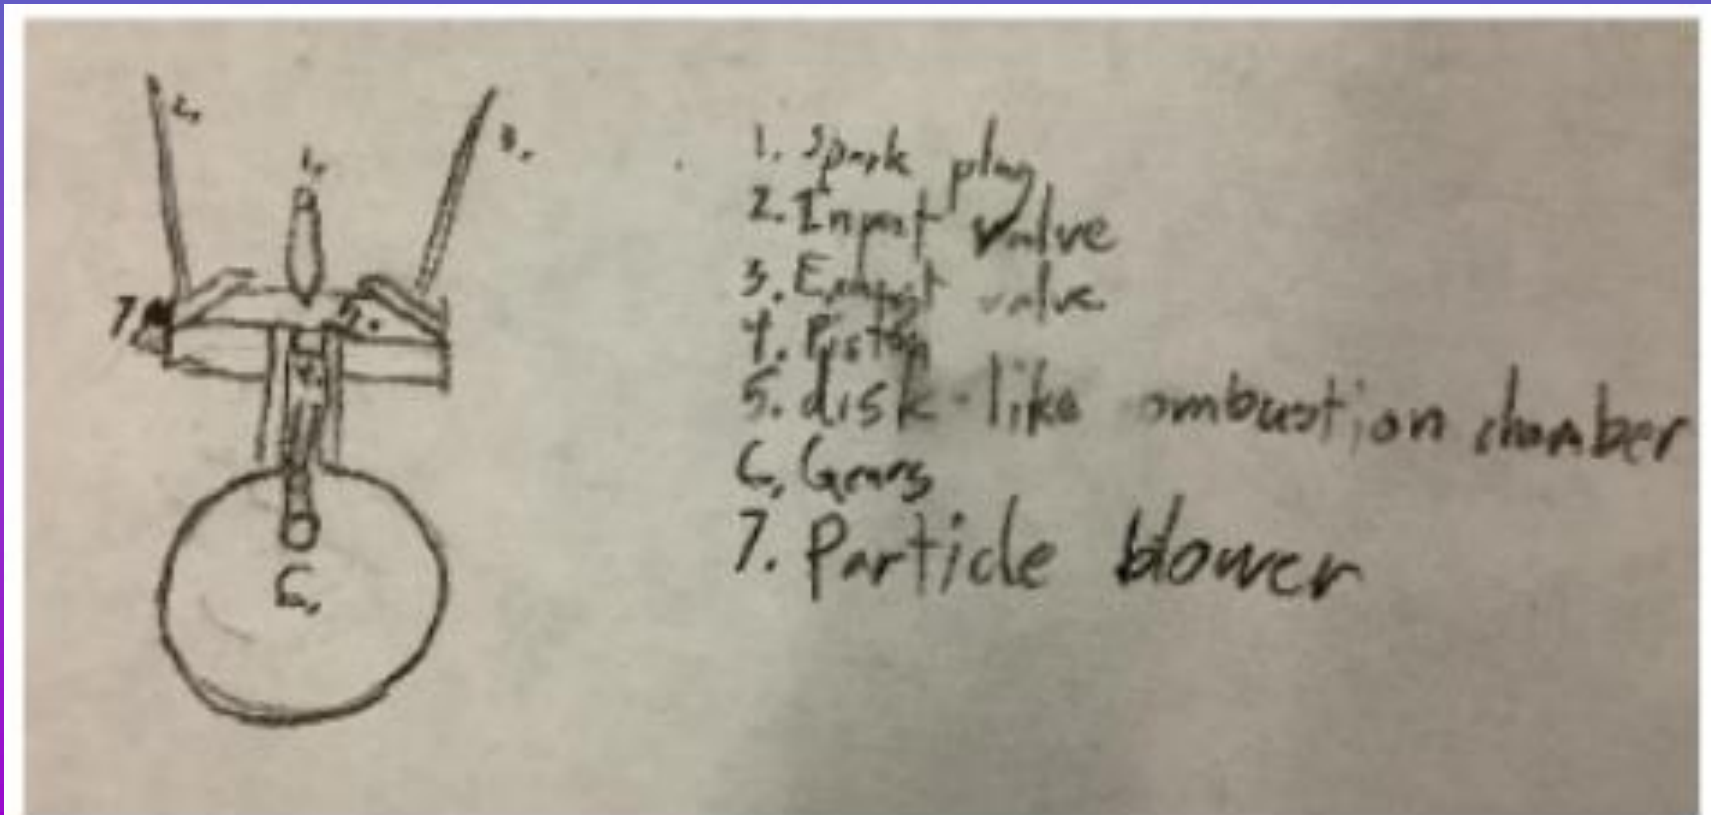 2.
3.
1.
7.
4.
6.
1. Spark plug
2. Input valve
3. valve
4. Piston
5. disk-like ombustion chamber
6. Gears
7. Particle blower